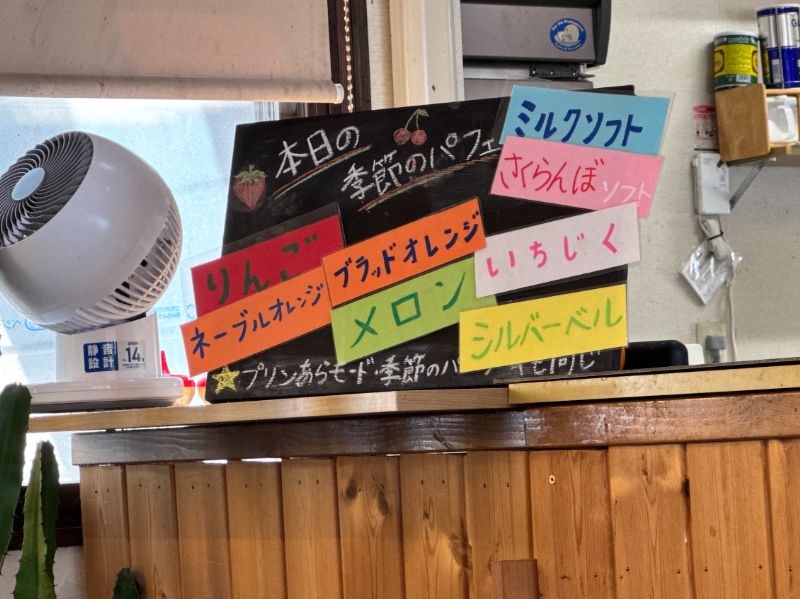 本日の
季節のパフェ
ミルクソフト
さくらんぼソフト
りんご
ブラッドオレンジ
いちじく
ネーブルオレンジ
メロン
シルバーベル
プリンあらモード・季節のパ
も同じ
静音
設計
14